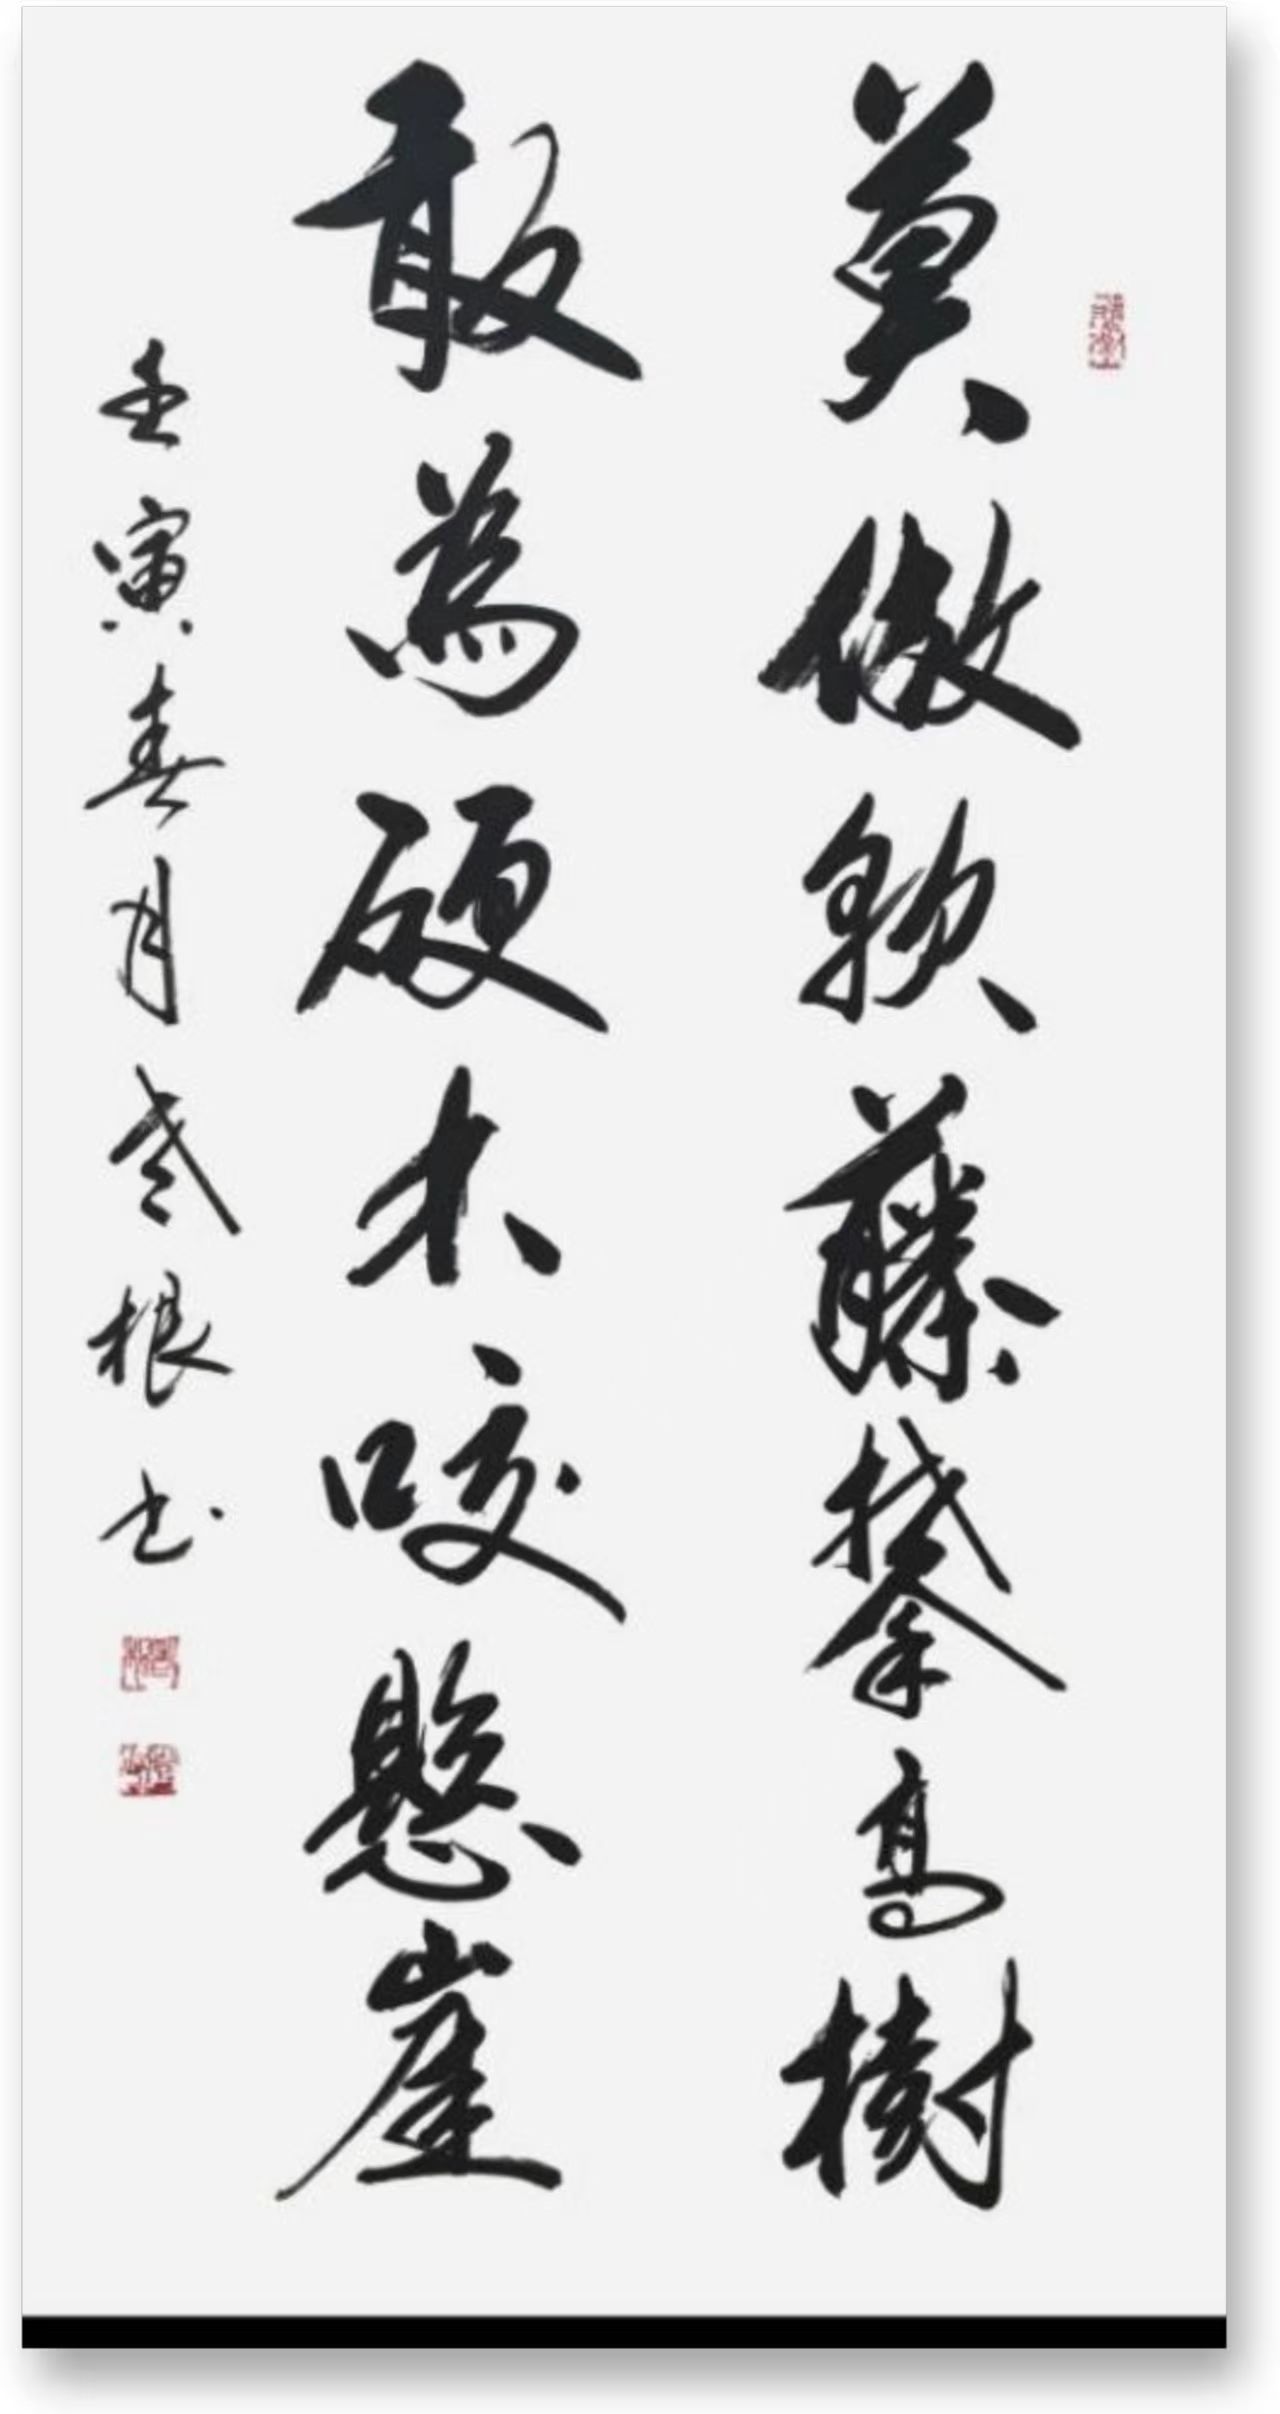 莫做軟藤攀高樹
敢為硬木咬懸崖
壬寅春月老根书